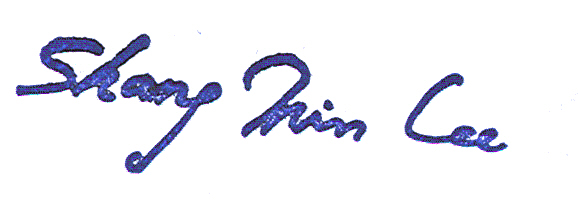 Shang Min Lee